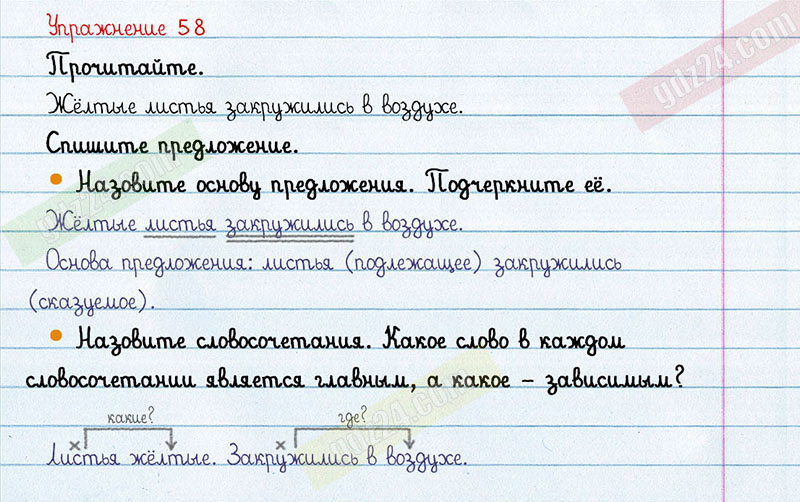 Упражнение 58
gdz24.com
Прочитайте.
Жёлтые листья закружились в воздухе.
Спишите предложение.
• Назовите основу предложения. Подчеркните её.
gdz24.com
Жёлтые листья закружились в воздухе.
Основа предложения: листья (подлежащее) закружились
(сказуемое).
• Назовите словосочетания. Какое слово в каждом
словосочетании является главным, а какое – зависимым?
gdz24.com
какие? где?
Листья жёлтые. Закружились в воздухе.